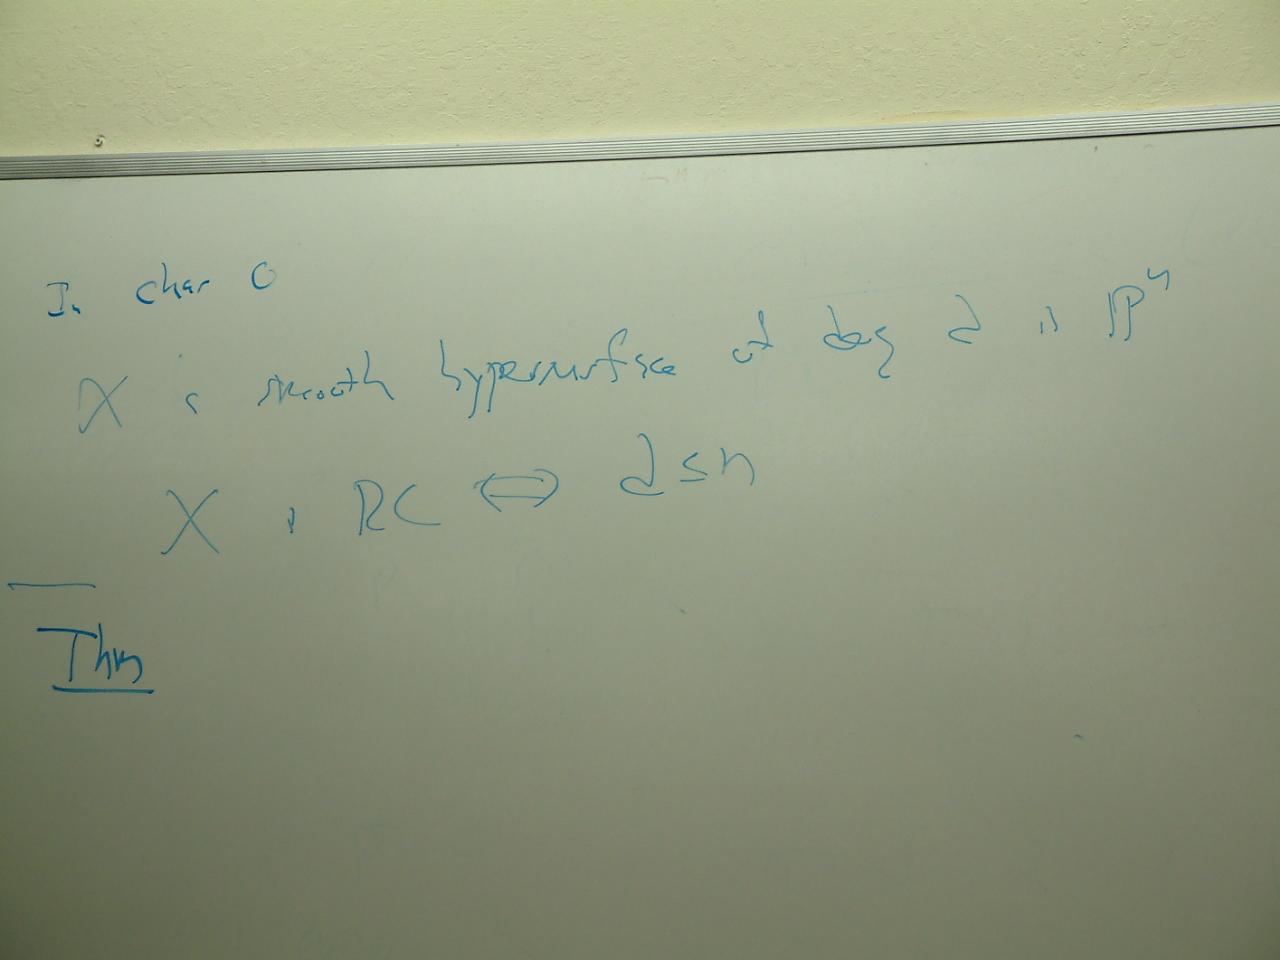 In char 0
X a smooth hypersurface of deg d in ℙⁿ
X is RC ⇔ d ≤ n
Thm